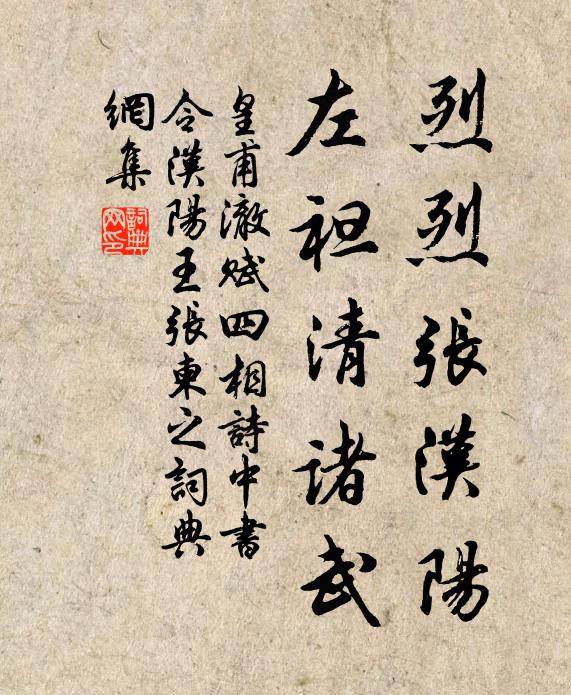 烈烈張漢陽
左袒清諸武
皇甫澈賦四相詩中書
令漢陽王張柬之詞典
網集
詞典
网印